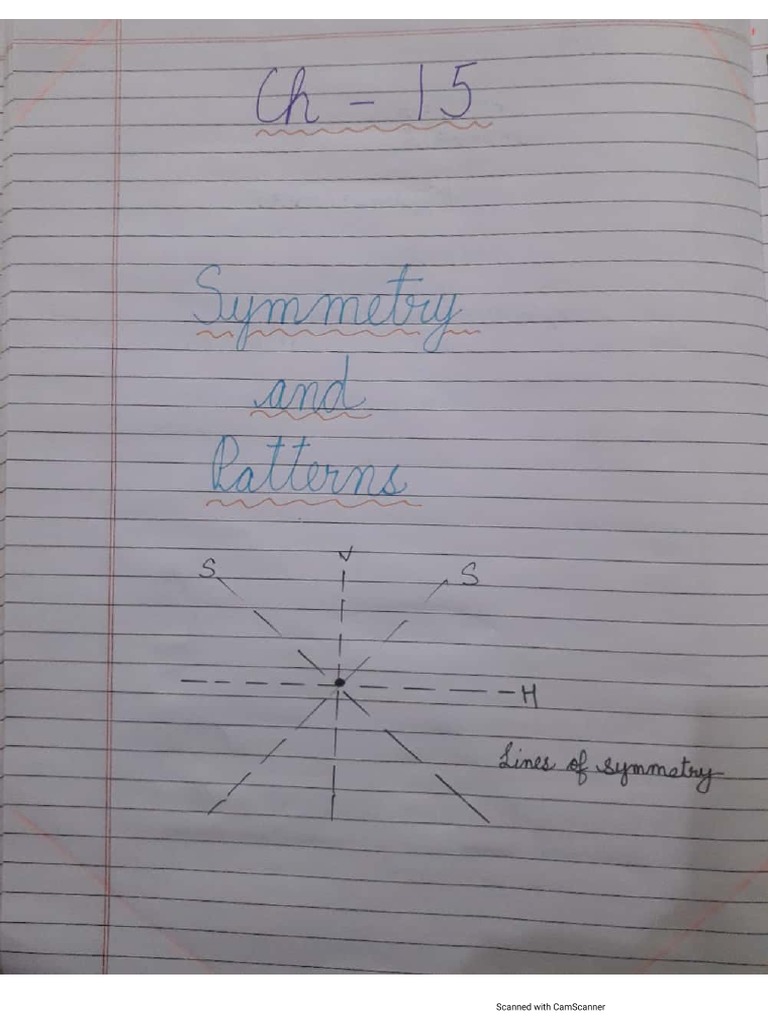 Ch - 15
Symmetry
and
Patterns
V
S
S
H
Lines of symmetry
Scanned with CamScanner